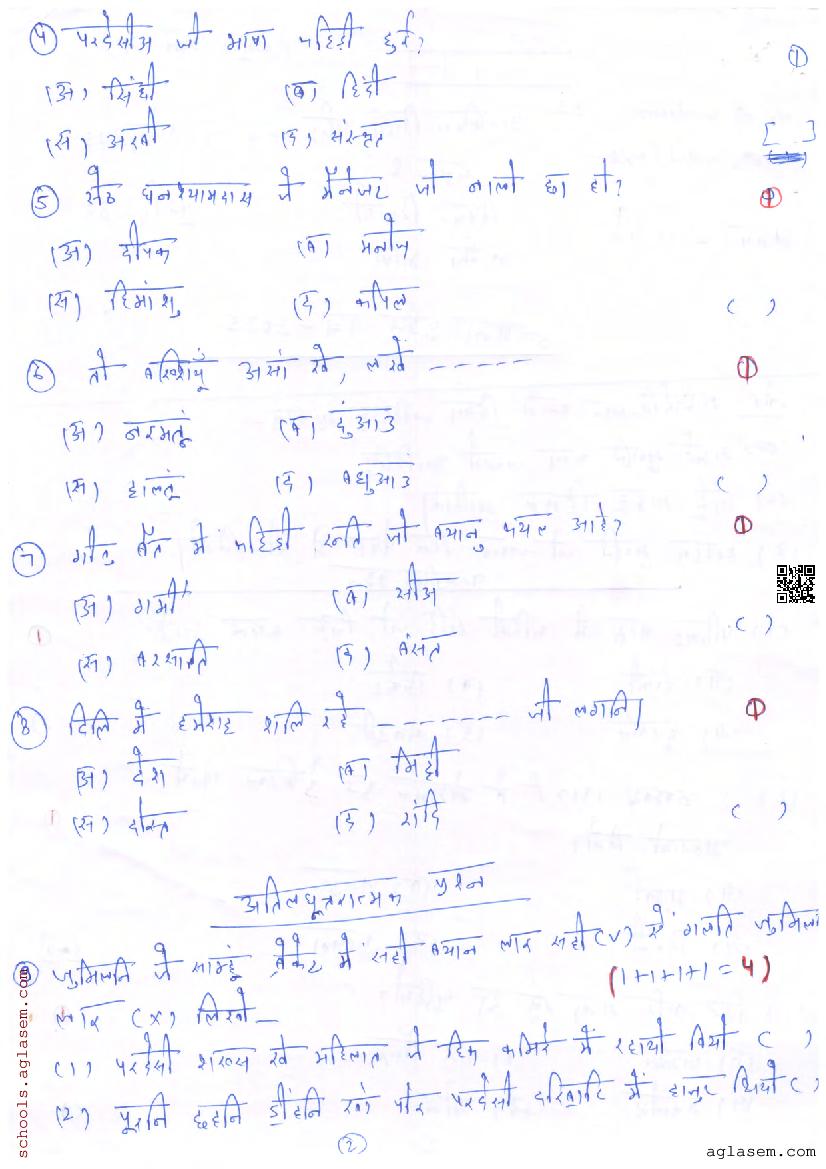 4 परदेसीअ जी भाषा कहिड़ी हुई? 1
(अ) सिंधी (ब) हिंदी
(स) अरबी (द) संस्कृत [ ]
5 सेठ घनश्यामदास जे मैनेजर जो नालो छा हो? 1
(अ) दीपक (ब) मनोज
(स) हिमांशु (द) कपिल ( )
6 तो बख्शियूं असां खे, लखें ------ 1
(अ) नइमतूं (ब) दुंआउ
(स) हालतूं (द) ( )
7 गीतु में कहिड़ी रुति जो बयानु थयल आहे? 1
(अ) गर्मी (ब) सीअ
(स) बरसाति (द) बंसत ( )
8 दिलि में हमेशह शलि रहे -------- जी लगनि। 1
(अ) देश (ब) मिट्टी
(स) दोस्त (द) रांदि ( )
अतिलघूत्तरात्मक प्रश्न
9 जुमिलनि जे साम्हूं ब्रेकेट में सही बयान लाइ सही (√) ऐं गलति जुमिला
लाइ (×) लिखो— (1+1+1+1=4)
(1) परदेसी शख्स खे महिलात जे हिक कमिरे में रहायो वियो ( )
(2) पूरनि छहनि डींहनि खां पोइ परदेसी दरिबारि में हाजुर थियो ( )
(2)
schools.aglasem.com
aglasem.com